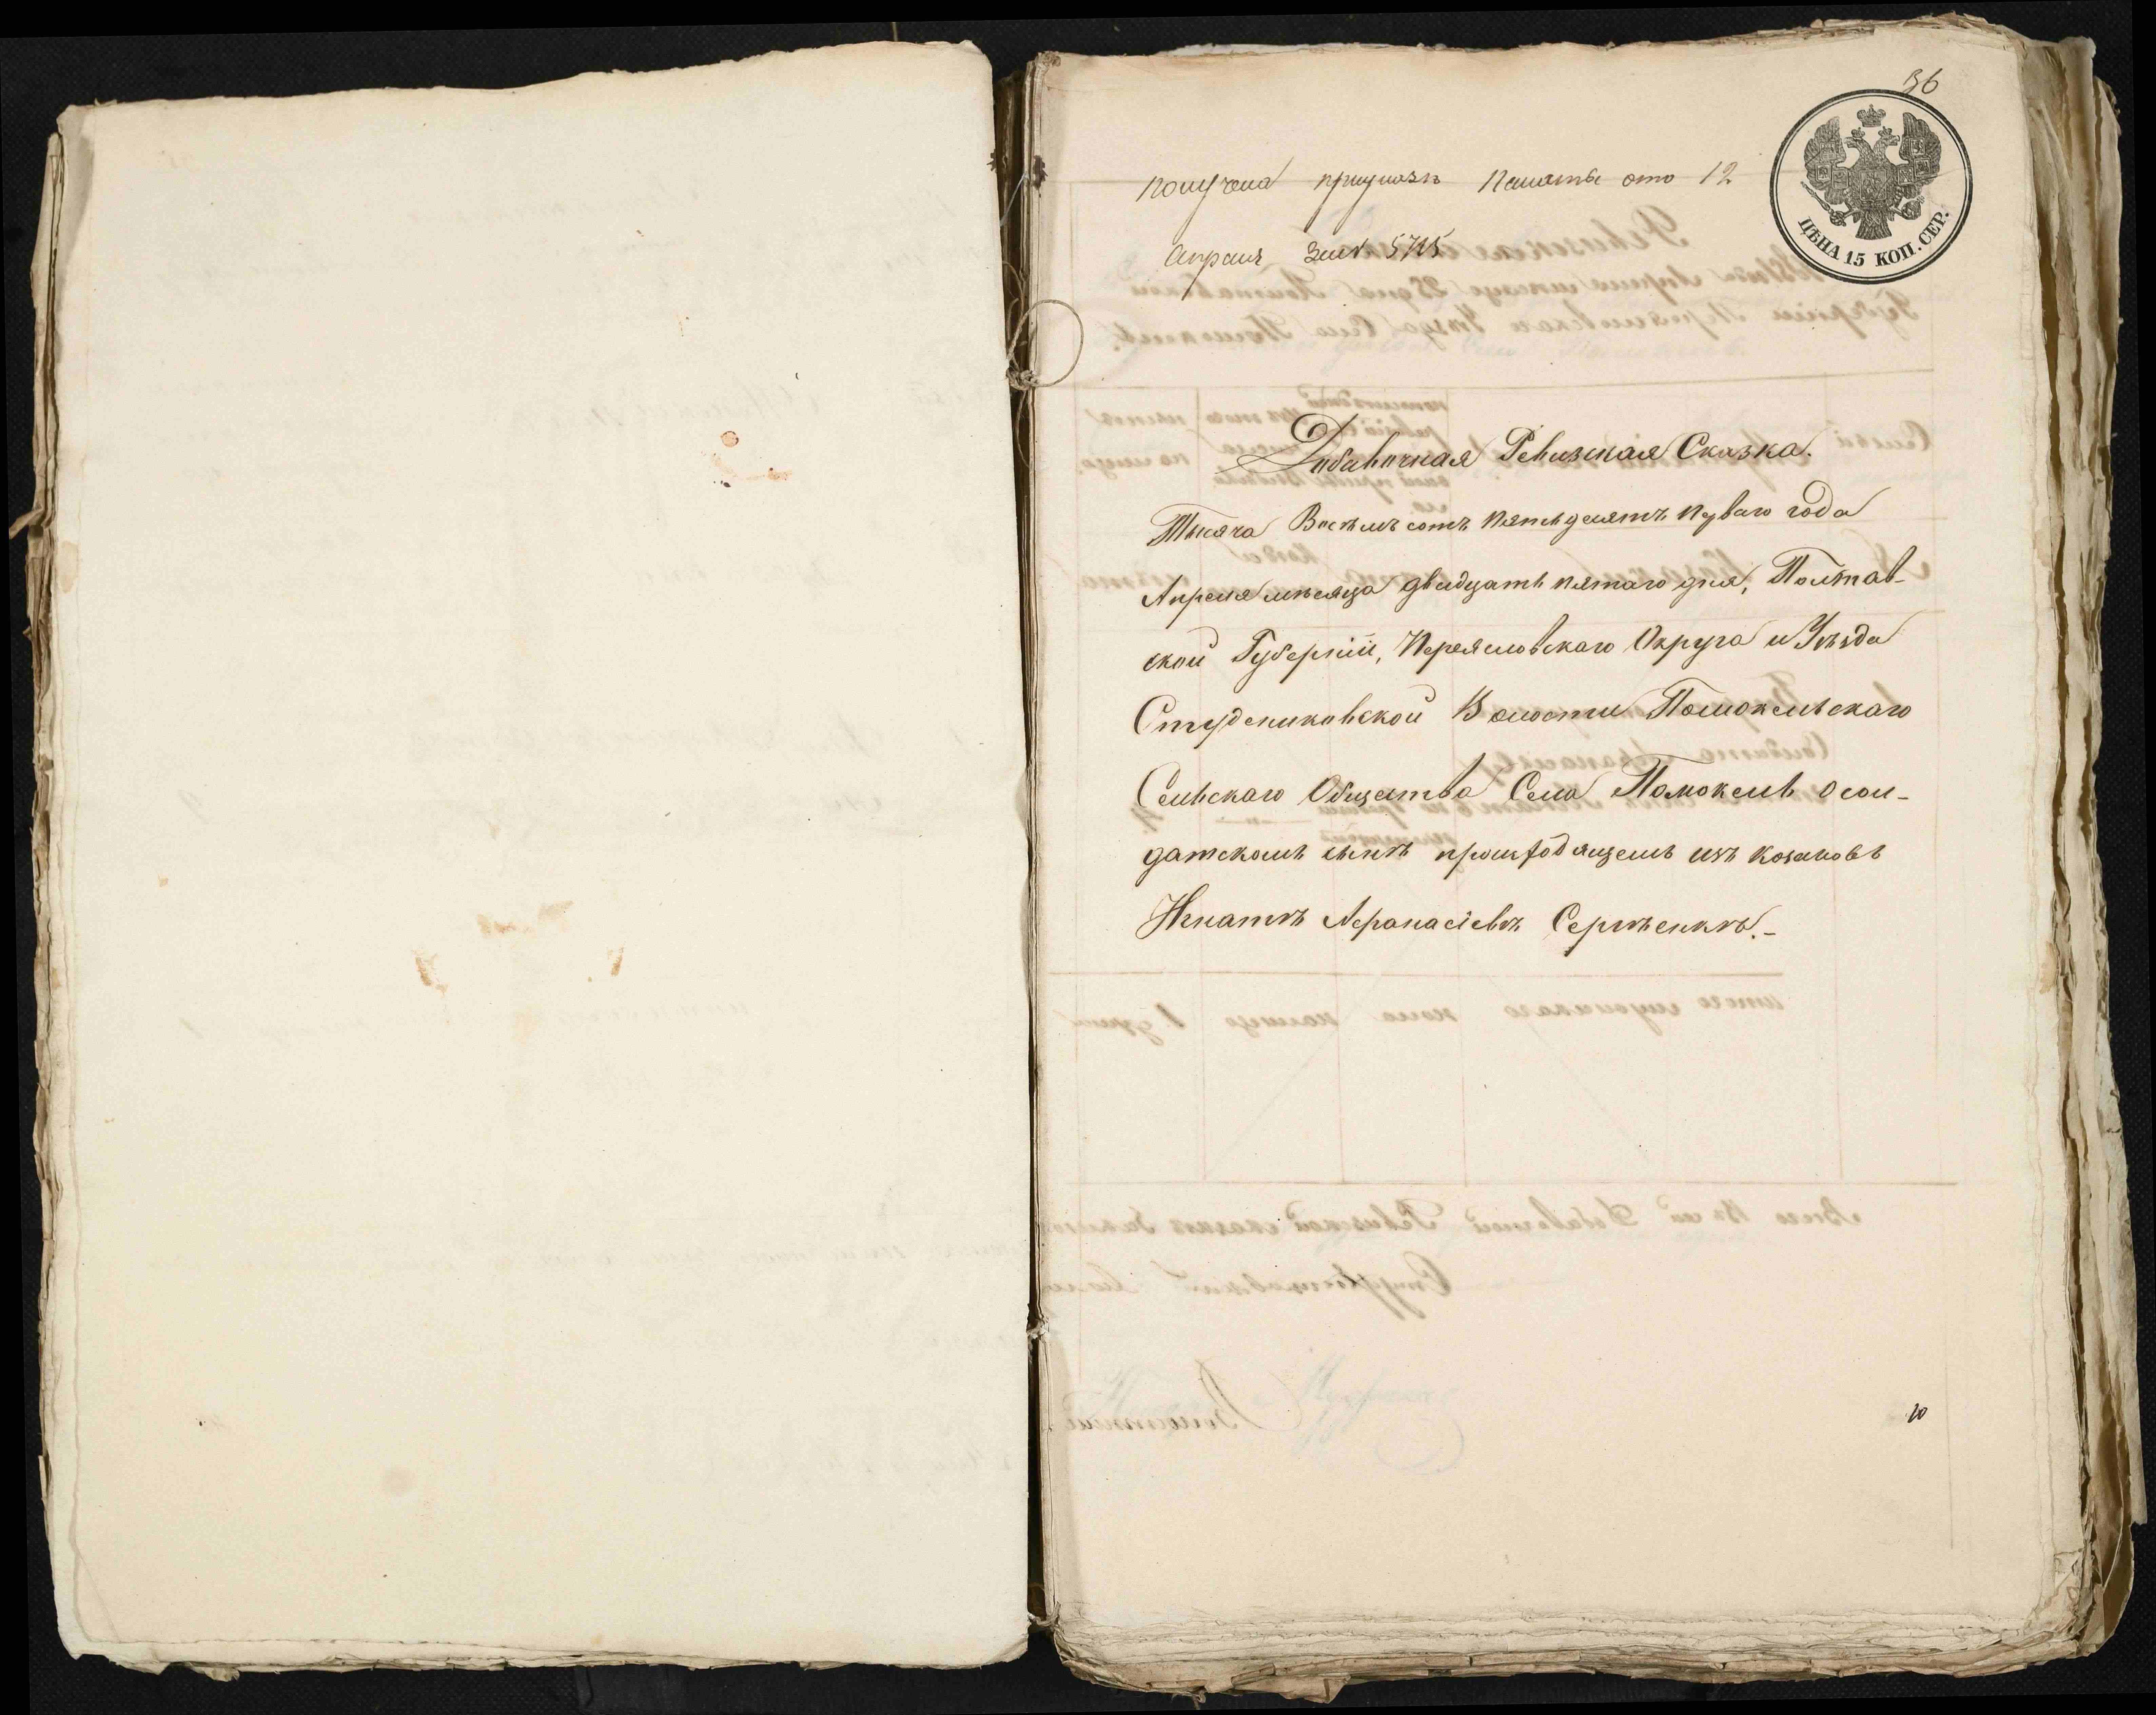 36
ЦѢНА 15 КОП. СЕР.
получена при указѣ Палаты отъ 12
Апреля за № 5715
Добавочная Ревизская Сказка.
Тысяча Восѣмъ сотъ пятьдесятъ перваго года
Апреля мѣсяца двадцать пятаго дня, Полтав-
ской Губерніи, Переясловскаго Округа и Уѣзда
Студениковской Волости Помокельскаго
Сельскаго Общества Села Помокель о сол-
датскомъ сынѣ происходящемъ изъ козаковъ
Игнатѣ Афанасіевѣ Сергѣенкѣ.-